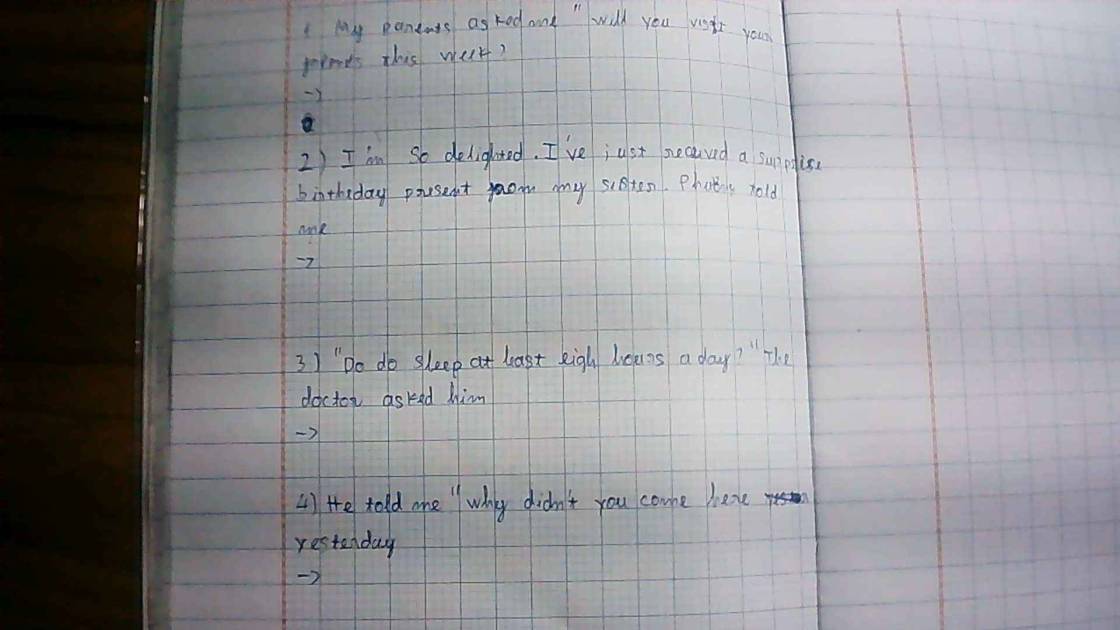 My parents asked me " will you visit your
this week?
->
2) I'm so delighted. I've just received a surprise
birthday present from my sister. told
me
->
3) "Do do sleep at least eigh hours a day?" The
doctor asked him
->
4) He told me "why didn't you come here
yesterday
->